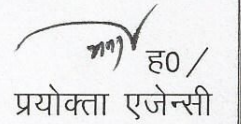 ह0 /
प्रयोक्ता एजेन्सी